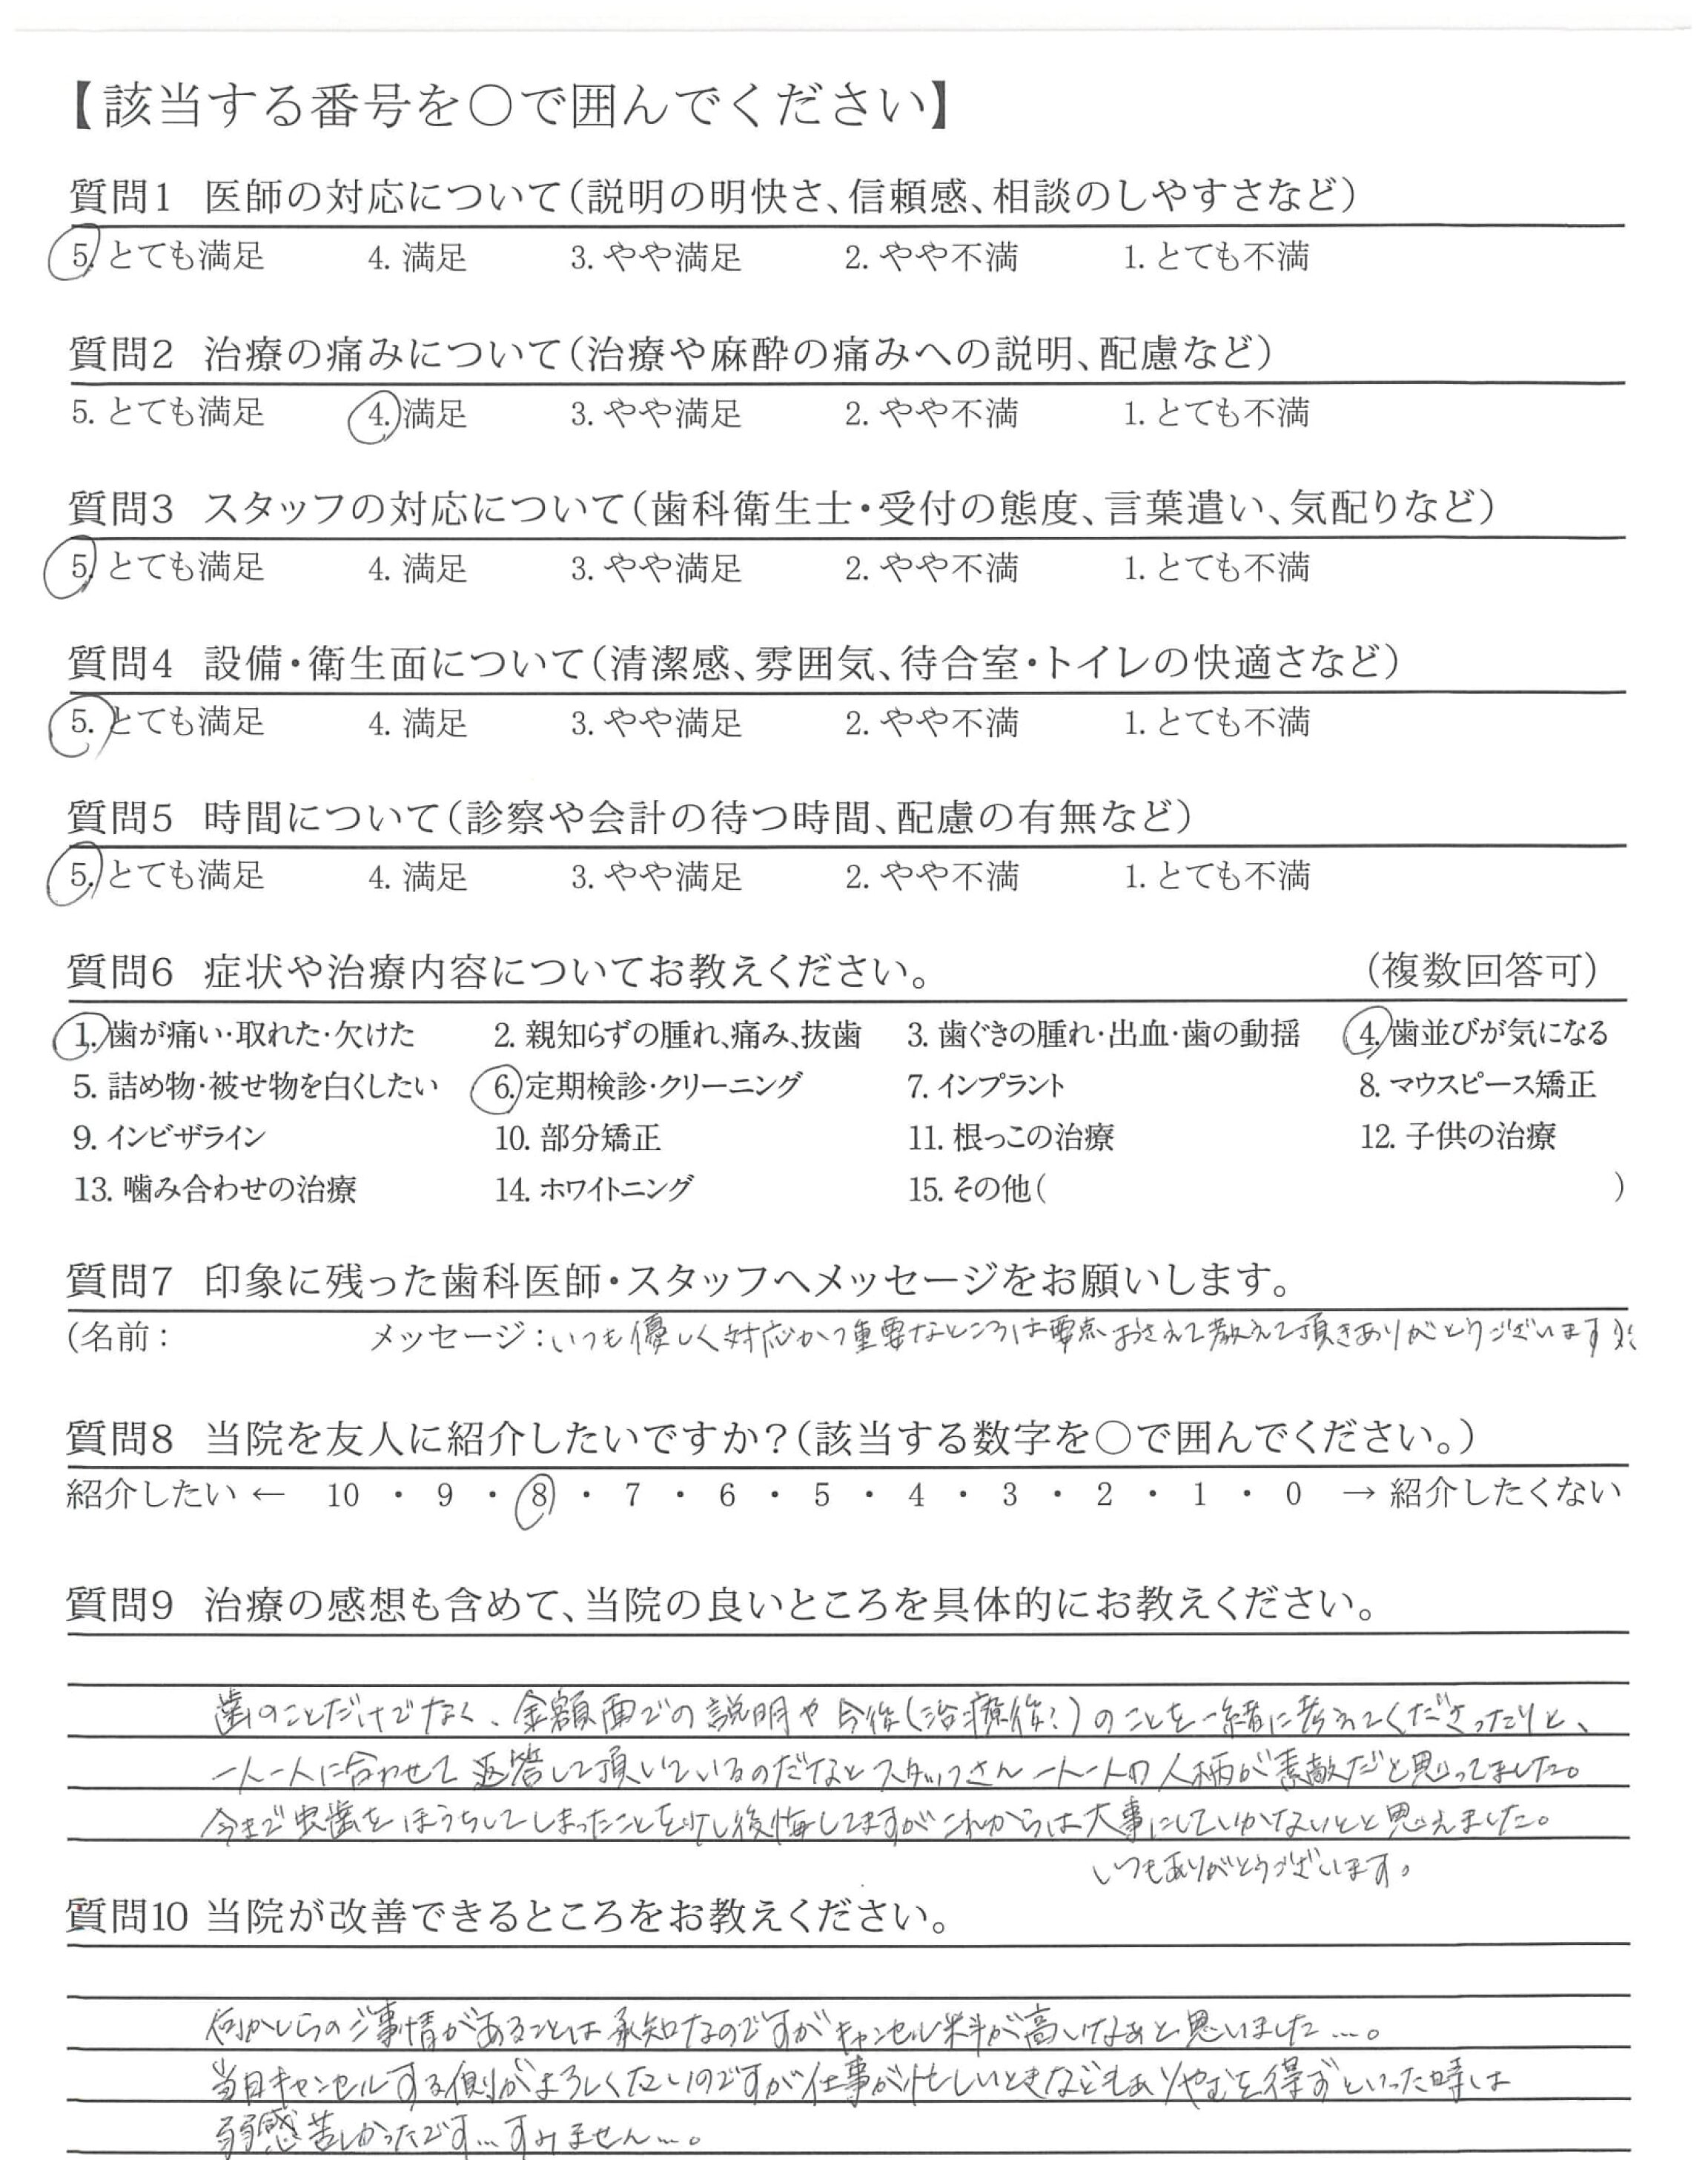 【該当する番号を○で囲んでください】
質問1 医師の対応について(説明の明快さ、信頼感、相談のしやすさなど)
5. とても満足 4. 満足 3. やや満足 2. やや不満 1. とても不満
質問2 治療の痛みについて(治療や麻酔の痛みへの説明、配慮など)
5. とても満足 4. 満足 3. やや満足 2. やや不満 1. とても不満
質問3 スタッフの対応について(歯科衛生士・受付の態度、言葉遣い、気配りなど)
5. とても満足 4. 満足 3. やや満足 2. やや不満 1. とても不満
質問4 設備・衛生面について(清潔感、雰囲気、待合室・トイレの快適さなど)
5. とても満足 4. 満足 3. やや満足 2. やや不満 1. とても不満
質問5 時間について(診察や会計の待つ時間、配慮の有無など)
5. とても満足 4. 満足 3. やや満足 2. やや不満 1. とても不満
質問6 症状や治療内容についてお教えください。 (複数回答可)
1. 歯が痛い・取れた・欠けた 2. 親知らずの腫れ、痛み、抜歯 3. 歯ぐきの腫れ・出血・歯の動揺 4. 歯並びが気になる
5. 詰め物・被せ物を白くしたい 6. 定期検診・クリーニング 7. インプラント 8. マウスピース矯正
9. インビザライン 10. 部分矯正 11. 根っこの治療 12. 子供の治療
13. 噛み合わせの治療 14. ホワイトニング 15. その他( )
質問7 印象に残った歯科医師・スタッフへメッセージをお願いします。
(名前: メッセージ:いつも優しく対応かつ重要なところは要点おさえて教えて頂きありがとうございます
質問8 当院を友人に紹介したいですか?(該当する数字を○で囲んでください。)
紹介したい ← 10 ・ 9 ・ 8 ・ 7 ・ 6 ・ 5 ・ 4 ・ 3 ・ 2 ・ 1 ・ 0 → 紹介したくない
質問9 治療の感想も含めて、当院の良いところを具体的にお教えください。
歯のことだけでなく、金額面での説明や今後(治療後?)のことを一緒に考えてくださったりと、
一人一人に合わせて返答して頂いているのだなとスタッフさん一人一人の人柄が素敵だと思ってました。
今まで虫歯をほうちしてしまったことを少し後悔してますがこれからは大事にしていかないとと思えました。
いつもありがとうございます。
質問10 当院が改善できるところをお教えください。
何かしらのご事情があることは承知なのですがキャンセル料が高いなぁと思いました…。
当日キャンセルする側がよろしくないのですが仕事が忙しいときなどもありやむを得ずといった時は
弱感苦しかったです…すみません…。